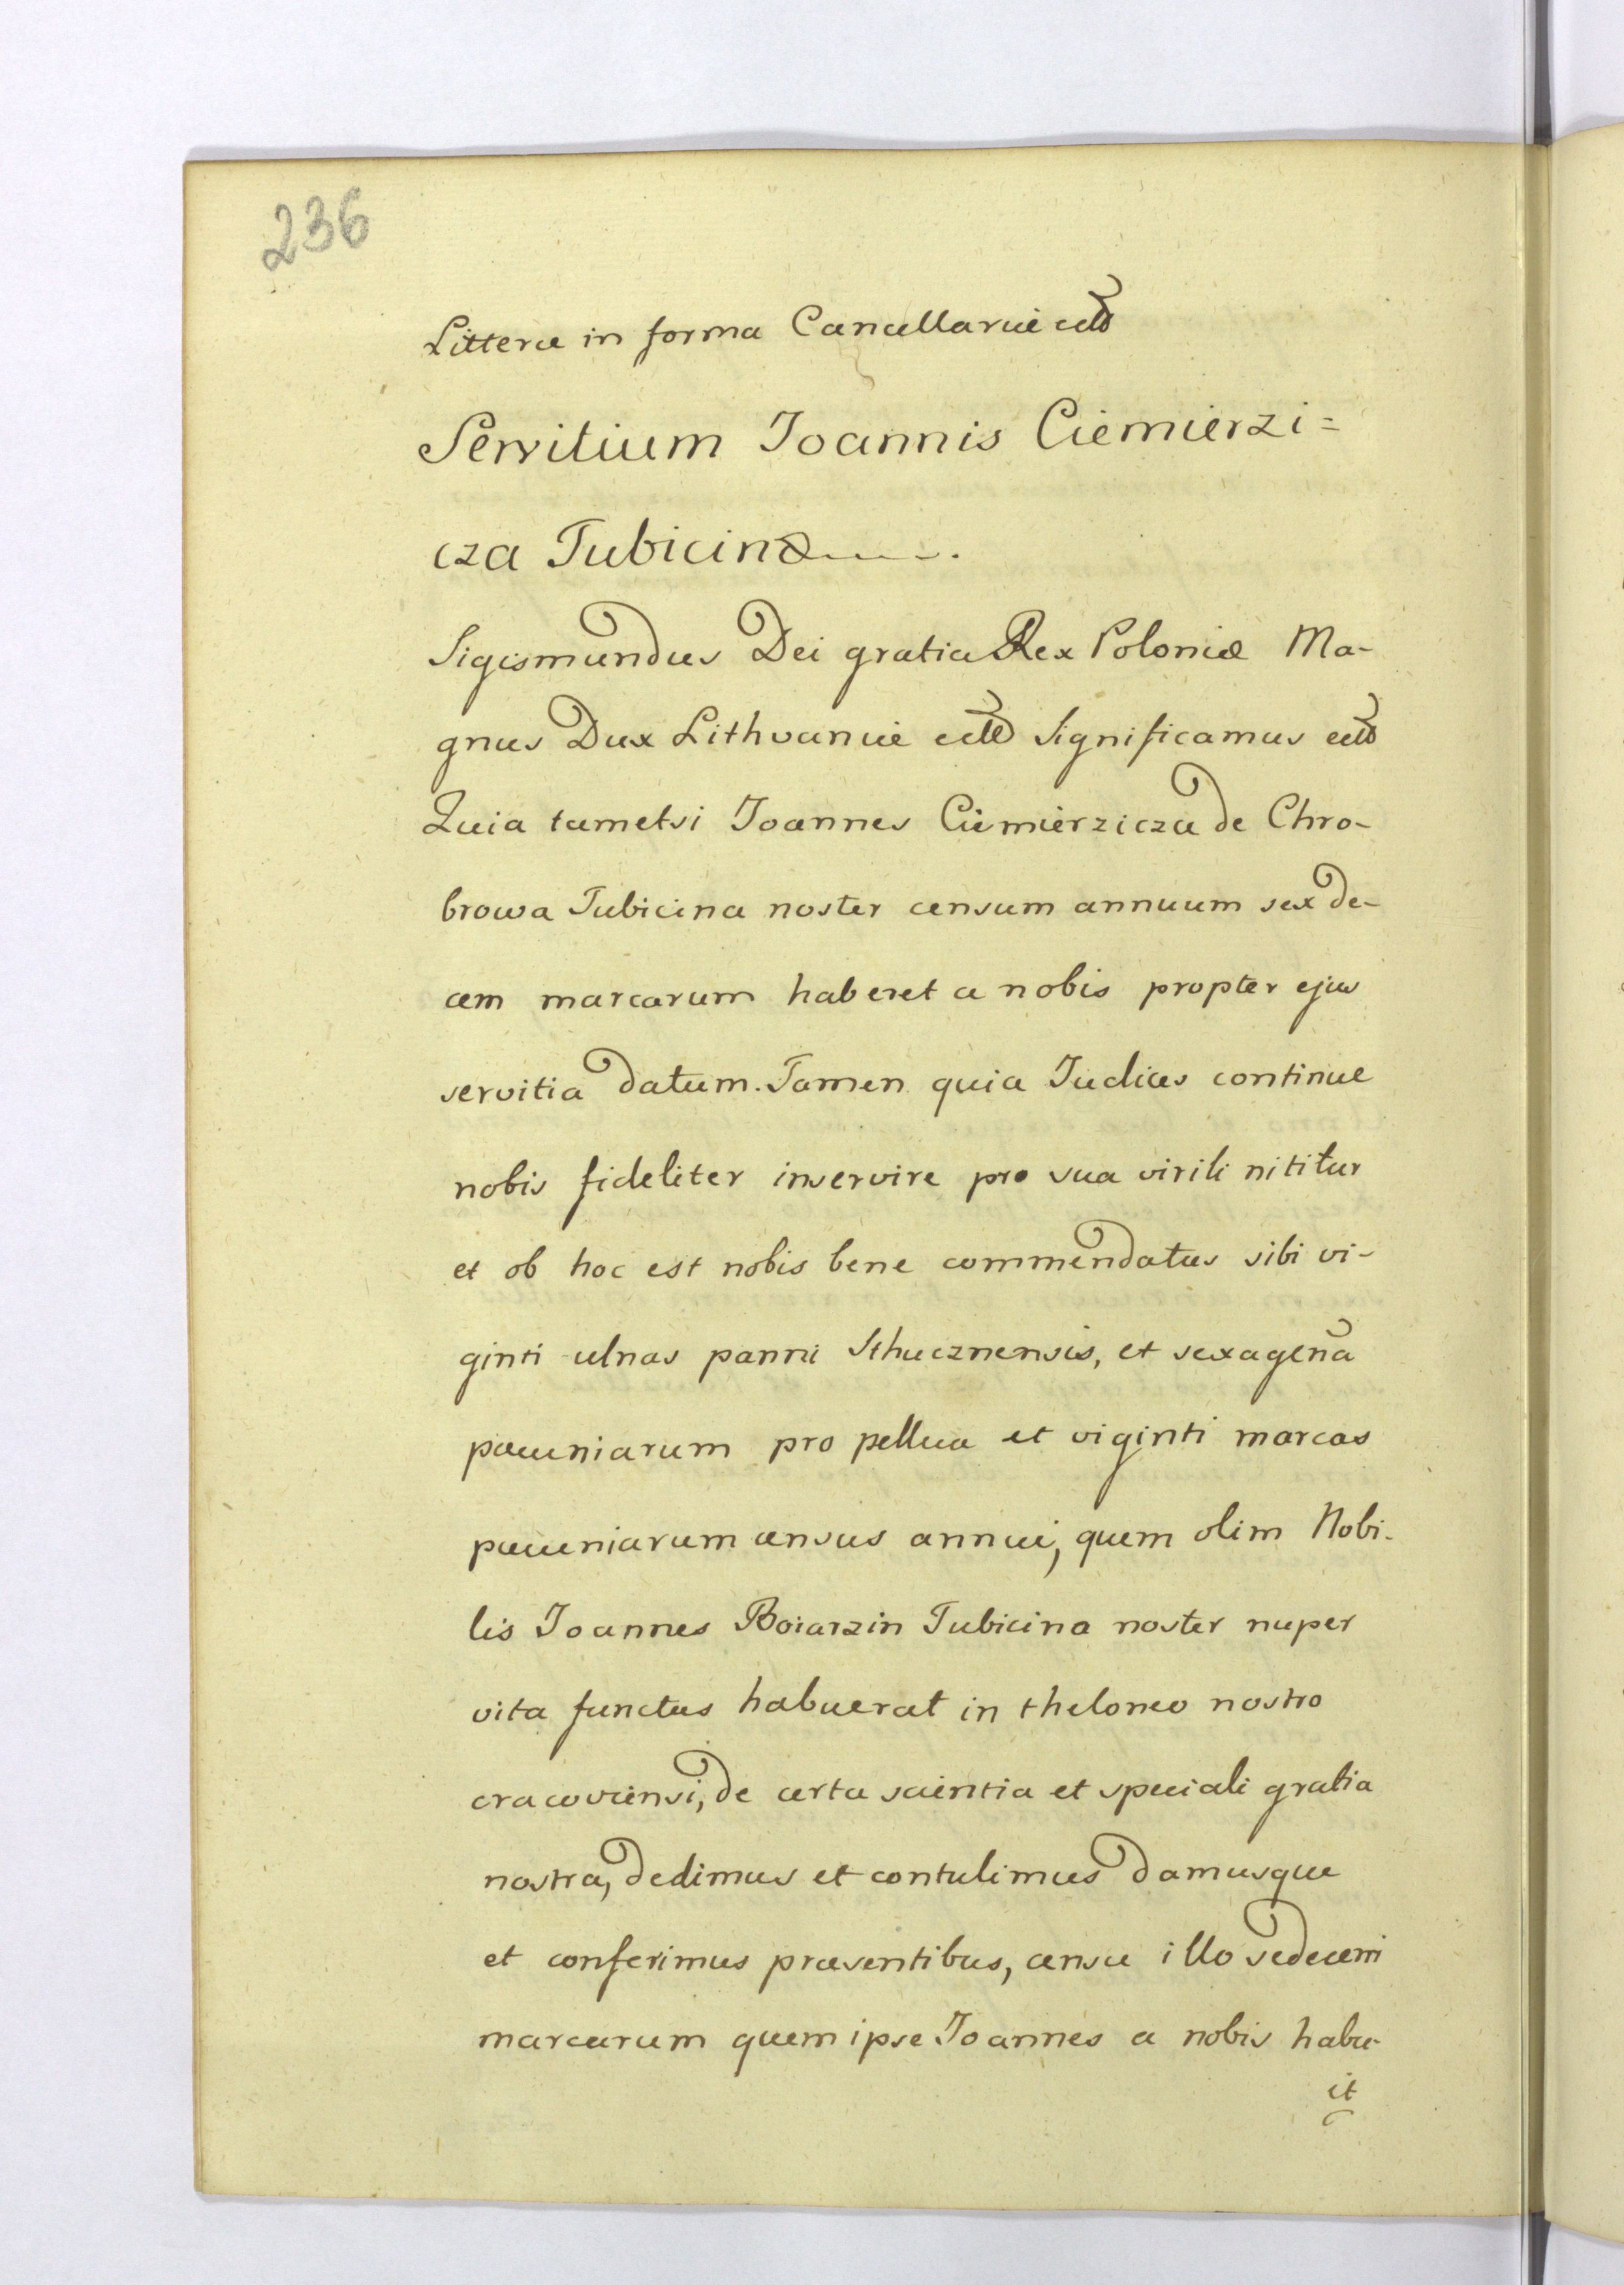 236
Litterae in forma Cancellariae etc
Servitium Joannis Ciemierzi=
cza Tubicinae
Sigismundus Dei gratia Rex Poloniae Ma-
gnus Dux Lithvaniae etc Significamus etc
Quia tametsi Joannes Ciemierzicza de Chro-
browa Tubicina noster censum annuum sex de-
cem marcarum haberet a nobis propter ejus
servitia datum. Tamen quia Judices continue
nobis fideliter inservire pro sua virili nititur
et ob hoc est nobis bene commendatus sibi vi-
ginti ulnas panni Sthucznensis, et sexagena
pecuniarum pro pellua et viginti marcas
pecuniarum census annui, quem olim Nobi-
lis Joannes Boiarzin Tubicina noster nuper
vita functus habuerat in theloneo nostro
cracoviensi, de certa scientia et speciali gratia
nostra, dedimus et contulimus damusque
et conferimus praesentibus, censu illo sedecem
marcarum quem ipse Joannes a nobis habu-
it